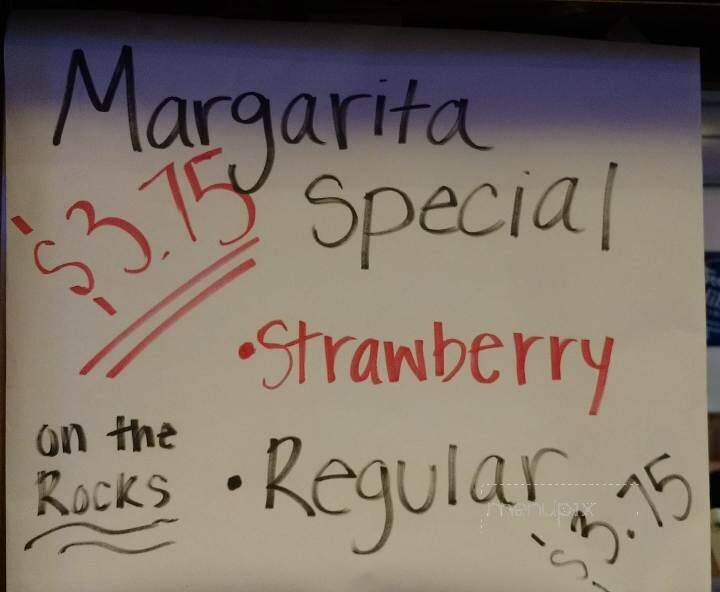 Margarita
$3.75
Special
•Strawberry
on the
Rocks
•Regular
menupix
$3.75